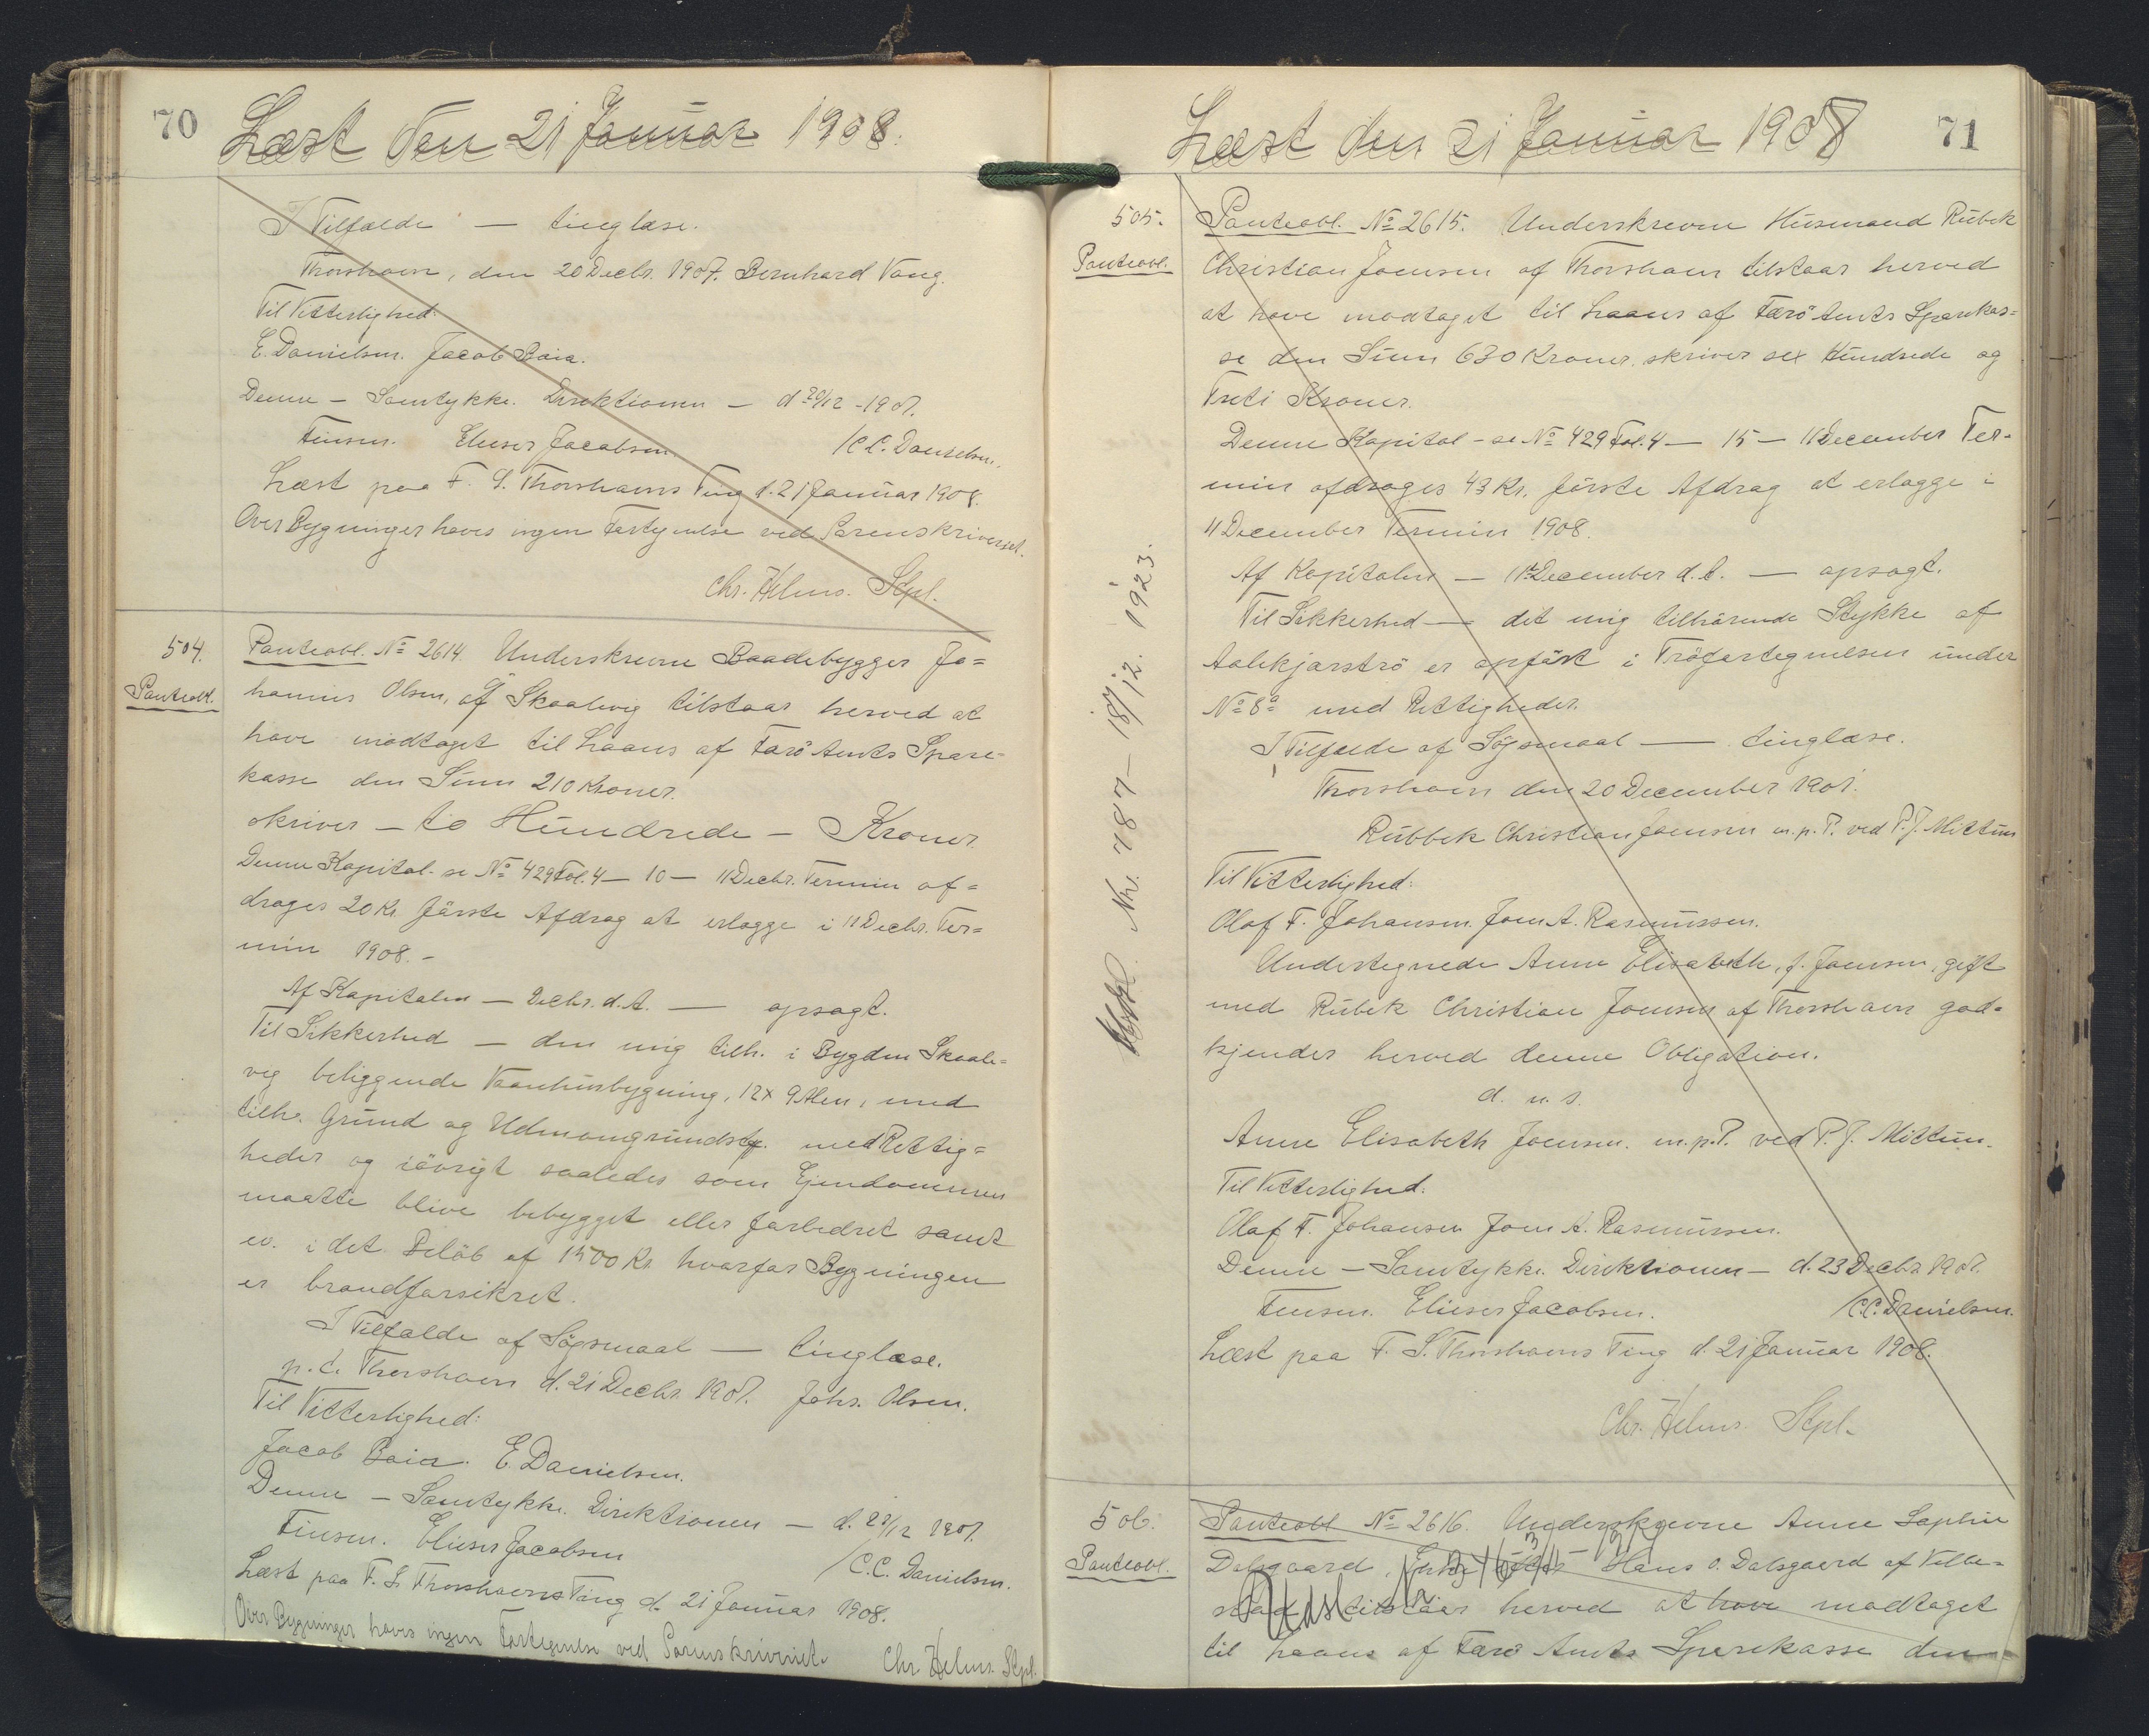 70
Læst den 21 Januar 1908.
I Tilfælde — tinglæse.
Thorshavn, den 20 Decbr. 1907. Bernhard Vang.
Til Vitterlighed:
E. Danielsen. Jacob Baia.
Denne — Samtykke. Direktionen — d 20/12 - 1907.
Finsen. Elieser Jacobsen /C.C. Danielsen.
Læst paa F. S. Thorshavns Ting d. 21 Januar 1908.
Over Bygninger haves ingen Fortegnelse ved Sorenskriveriet.
Chr. Helms. Stpl.
504.
Panteobl.
Panteobl. No 2614. Underskrevne Baadebygger Jo=
hannes Olsen, af Skaalevig tilstaar herved at
have modtaget til Laans af Færö Amts Spare-
kasse den Sum 210 Kroner.
skriver — to Hundrede — Kroner
Denne Kapital - se No 429 Fol. 4 — 10 — 11 Decbr. Termin af=
drages 20 Kr. første Afdrag at erlægge i 11 Decbr. Ter=
min 1908. -
Af Kapitalen — Decbr. d. A. — opsagt.
Til Sikkerhed — den mig tilh. i Bygden Skaale=
vig beliggende Vaanhusbygning, 12 x 9 Alen, med
tilh. Grund og Udmongrundstk. med Rettig=
heder og iövrigt saaledes som Ejendommen
maatte blive bebygget eller forbedret samt
ev. i det Belöb af 1500 Kr. hvorfor Bygningen
er brandforsikret.
I Tilfælde af Sögsmaal — tinglæse.
p. t. Thorshavn d. 21 Decbr. 1907. Johs. Olsen.
Til Vitterlighed:
Jacob Baia. E. Danielsen.
Denne — Samtykke. Direktionen — d. 23/12 1907.
Finsen. Elieser Jacobsen /C.C. Danielsen.
Læst paa F. S. Thorshavns Ting d. 21 Januar 1908.
Over Bygninger haves ingen Fortegnelse ved Sorenskriveriet. Chr. Helms. Stpl.
71
Læst den 21 Januar 1908
505.
Panteobl.
Panteobl. No 2615. Underskrevne Husmand Rubek
Christian Joensen af Thorshavn tilstaar herved
at have modtaget til Laans af Færö Amts Sparekas=
se den Sum 630 Kroner. skriver sex Hundrede og
Treti Kroner.
Denne Kapital - se No 429 Fol. 4 — 15 — 11 December Ter-
min afdrages 43 Kr. förste Afdrag at erlægge i
11 December Termin 1908.
Af Kapitalen — 11 December d. A. — opsagt.
Til Sikkerhed — det mig tilhörende Stykke af
Aalekjærströ er opfört i Tröfortegnelsen under
No 8a med Rettigheder.
I Tilfælde af Sögsmaal — tinglæse.
Thorshavn den 20 December 1907.
Rubbek Christian Joensen m. p. P. ved P. J. Mittun
Til Vitterlighed:
Olaf F. Johansen. Joen A. Rasmussen.
Undertegnede Anne Elisabeth, f. Joensen, gift
med Rubek Christian Joensen af Thorshavn god-
kjender herved denne Obligation.
d. u. s.
Anne Elisabeth Joensen. m. p. P. ved P. J. Mittun.
Til Vitterlighed:
Olaf F. Johansen Joen A. Rasmussen.
Denne — Samtykke. Direktionen — d. 23 Decbr. 1907.
Finsen. Elieser Jacobsen. /C.C. Danielsen.
Læst paa F. S. Thorshavns Ting d. 21 Januar 1908.
Chr. Helms. Stpl.
Nr. 787 — 18/12. 1923.
506.
Panteobl.
Panteobl No 2616. Underskrevne Anne Sophie
Dalsgaard, Enke efter Hans O. Dalsgaard af Velbe=
stad tilstaar herved at have modtaget
til Laans af Færö Amts Sparekasse den
Udsl